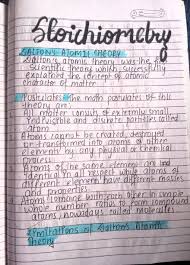 Stoichiomcby
DALTON'S ATOMIC THEORY
Dalton's atomic theory was the first
Scientific theory which successfully
explained the concept of atomic
character of matter
Postulates The main postulates of this
theory
All matter consists of extremly small
indivisible and distinct particles called
atom
Atoms cannot be created, destroyed
or transformed into atoms of other
elements by any physical or chemical
process.
Atoms of the same element are
identical in all respect while atoms of
different element have different masses
and properties
Atoms combine with each other in simple
whole number ratio to form compound
atoms, nowadays called molecules
Limitations of Dalton's Atomic
Theory